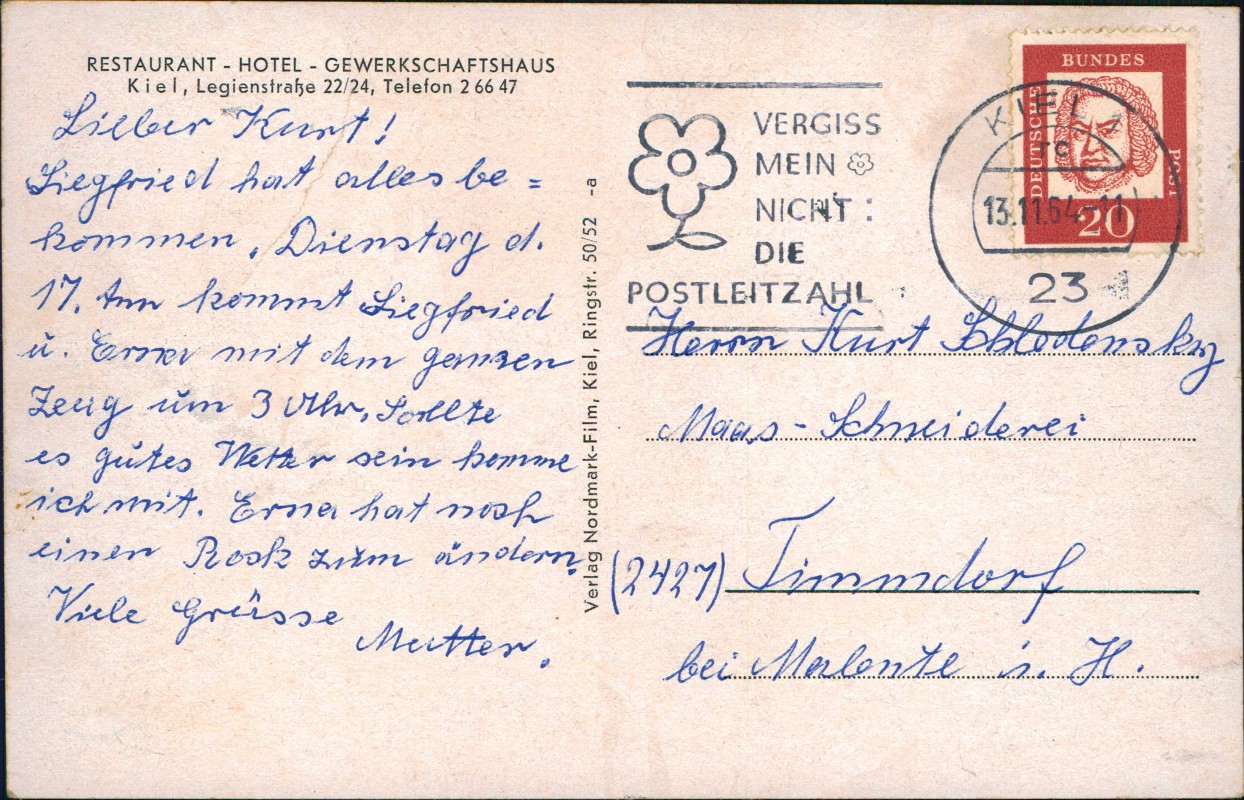 RESTAURANT - HOTEL - GEWERKSCHAFTSHAUS
Kiel, Legienstraße 22/24, Telefon 2 66 47
Lieber Kurt!
Siegfried hat alles be=
kommen. Dienstag d.
17. kommt Siegfried
u. Erna mit dem ganzen
Zeug um 3 Uhr. Sollte
es gutes Wetter sein komme
ich mit. Erna hat noch
einen Rock zum ändern.
Viele Grüsse
Mutter.
Verlag Nordmark-Film, Kiel, Ringstr. 50/52 -a
VERGISS
MEIN
NICHT:
DIE
POSTLEITZAHL
DEUTSCHE
BUNDES
POST
20
KIEL 1
13.11.64-11
23
Herrn Kurt
Maas-Schneiderei
(2427) Timmdorf
bei Malente i. H.